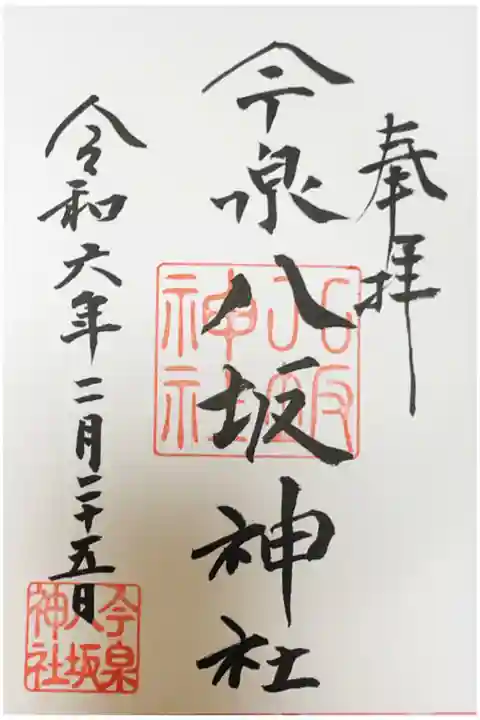 奉拝
今泉八坂神社
八坂神社
令和六年二月二十五日
今泉八坂神社